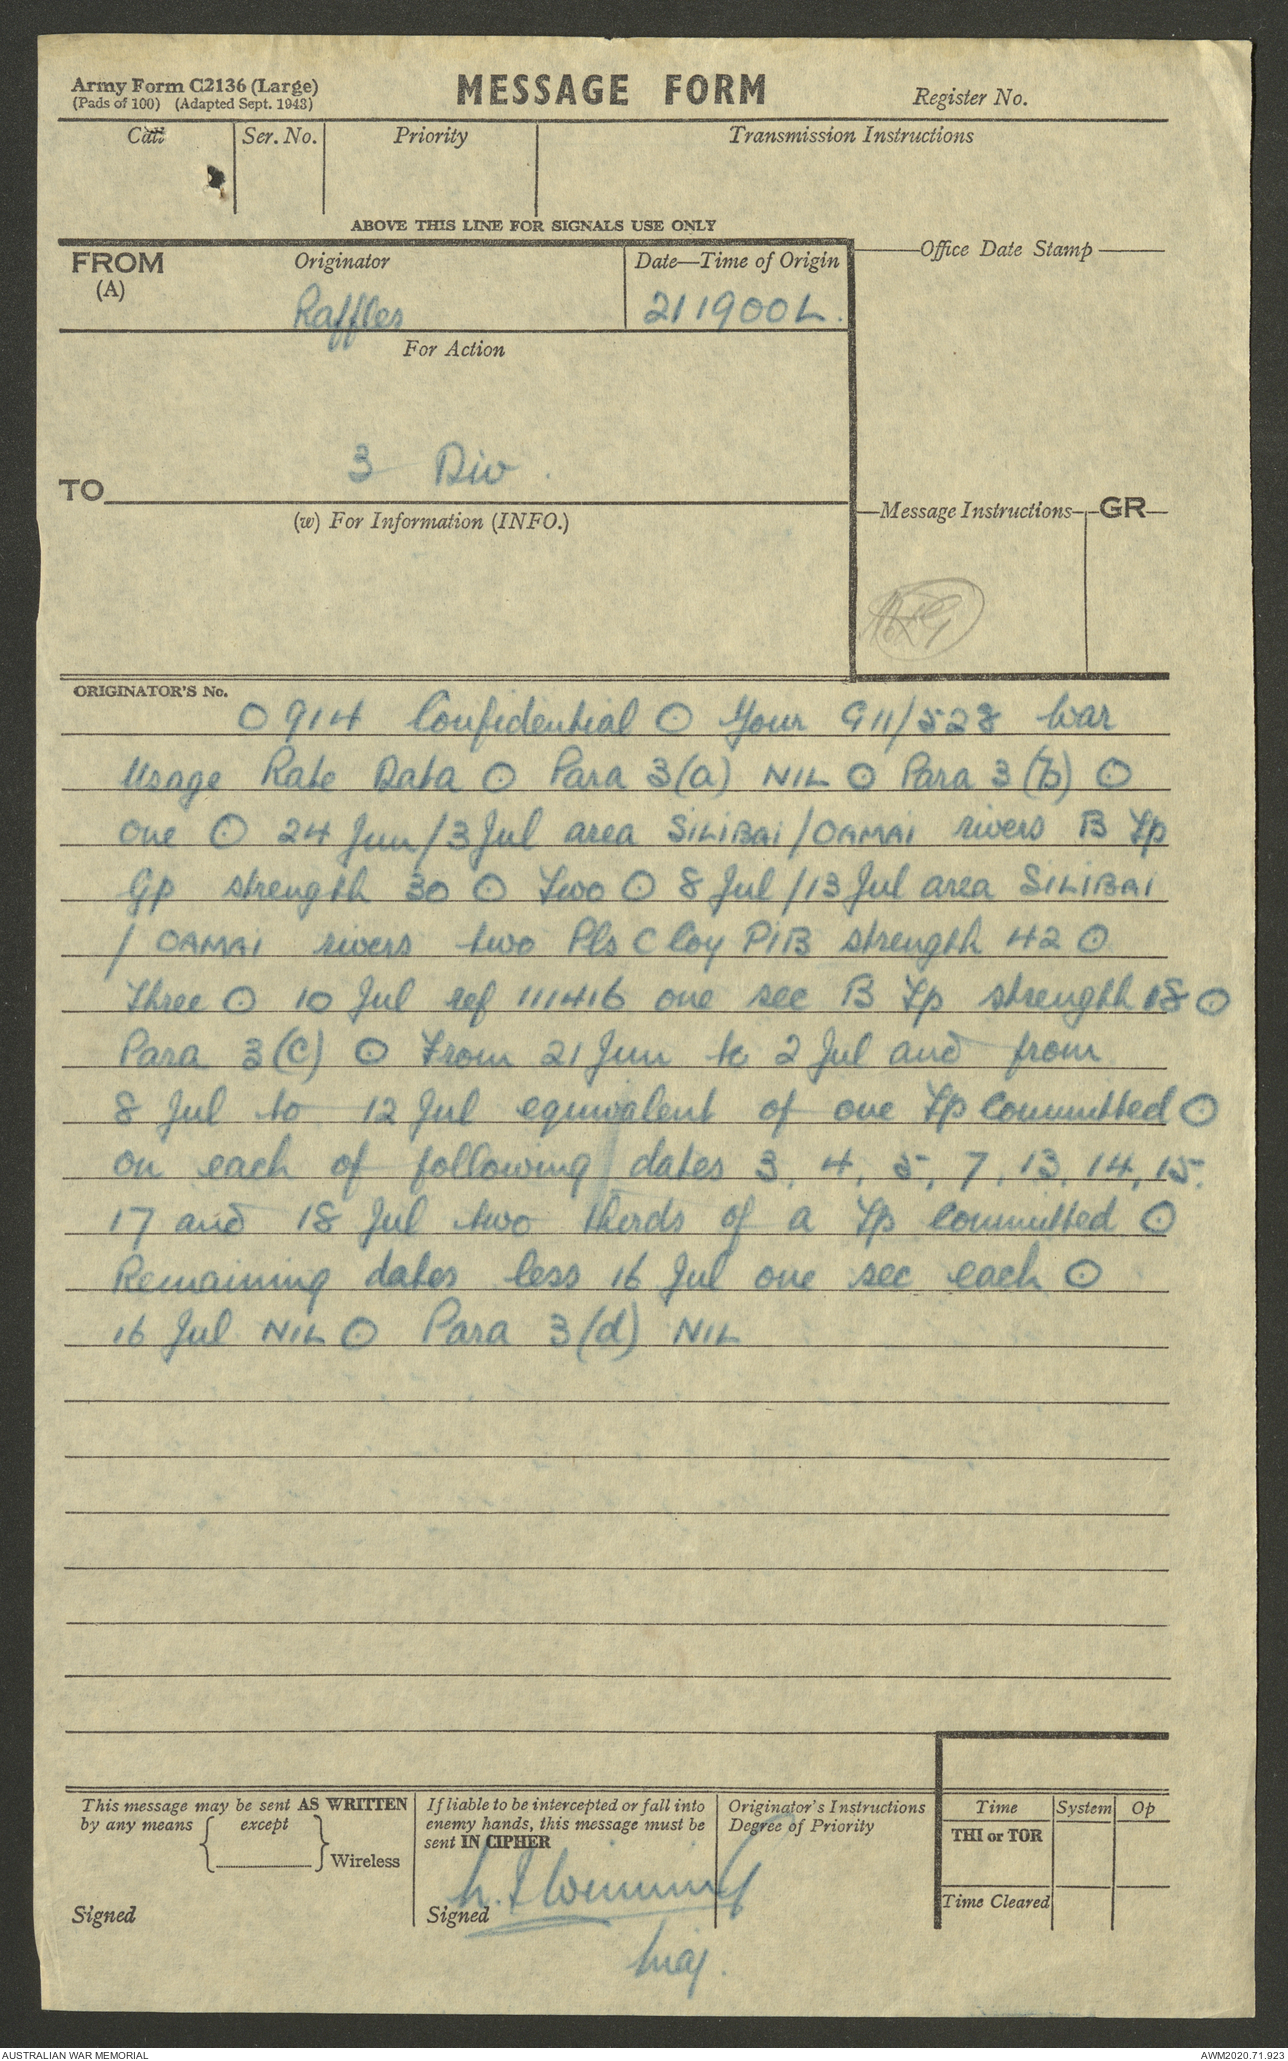 Army Form C2136 (Large)
(Pads of 100) (Adapted Sept. 1943)
MESSAGE FORM
Register No.
Call
Ser. No.
Priority
Transmission Instructions
ABOVE THIS LINE FOR SIGNALS USE ONLY
FROM
(A)
Originator
Raffles
Date—Time of Origin
211900L.
Office Date Stamp
For Action
3 Div.
TO
(w) For Information (INFO.)
Message Instructions
GR
ORIGINATOR'S No.
O914 Confidential ⊙ Your G11/528 War
Usage Rate Data ⊙ Para 3(a) NIL ⊙ Para 3(b) ⊙
one ⊙ 24 Jun/3 Jul area SILIBAI/OAMAI rivers B Tp
Gp strength 30 ⊙ Two ⊙ 8 Jul/13 Jul area SILIBAI
/OAMAI rivers two Pls C Coy PIB strength 42 ⊙
Three ⊙ 10 Jul ref 111416 one sec B Tp strength 18 ⊙
Para 3(C) ⊙ From 21 Jun to 2 Jul and from
8 Jul to 12 Jul equivalent of one Tp committed ⊙
on each of following dates 3, 4, 5, 7, 13, 14, 15,
17 and 18 Jul two thirds of a Tp committed ⊙
Remaining dates less 16 Jul one sec each ⊙
16 Jul NIL ⊙ Para 3(d) NIL
This message may be sent AS WRITTEN
by any means { except } Wireless
Signed
If liable to be intercepted or fall into
enemy hands, this message must be
sent IN CIPHER
Signed
Maj.
Originator's Instructions
Degree of Priority
Time
System
Op
THI or TOR
Time Cleared
AUSTRALIAN WAR MEMORIAL
AWM2020.71.923